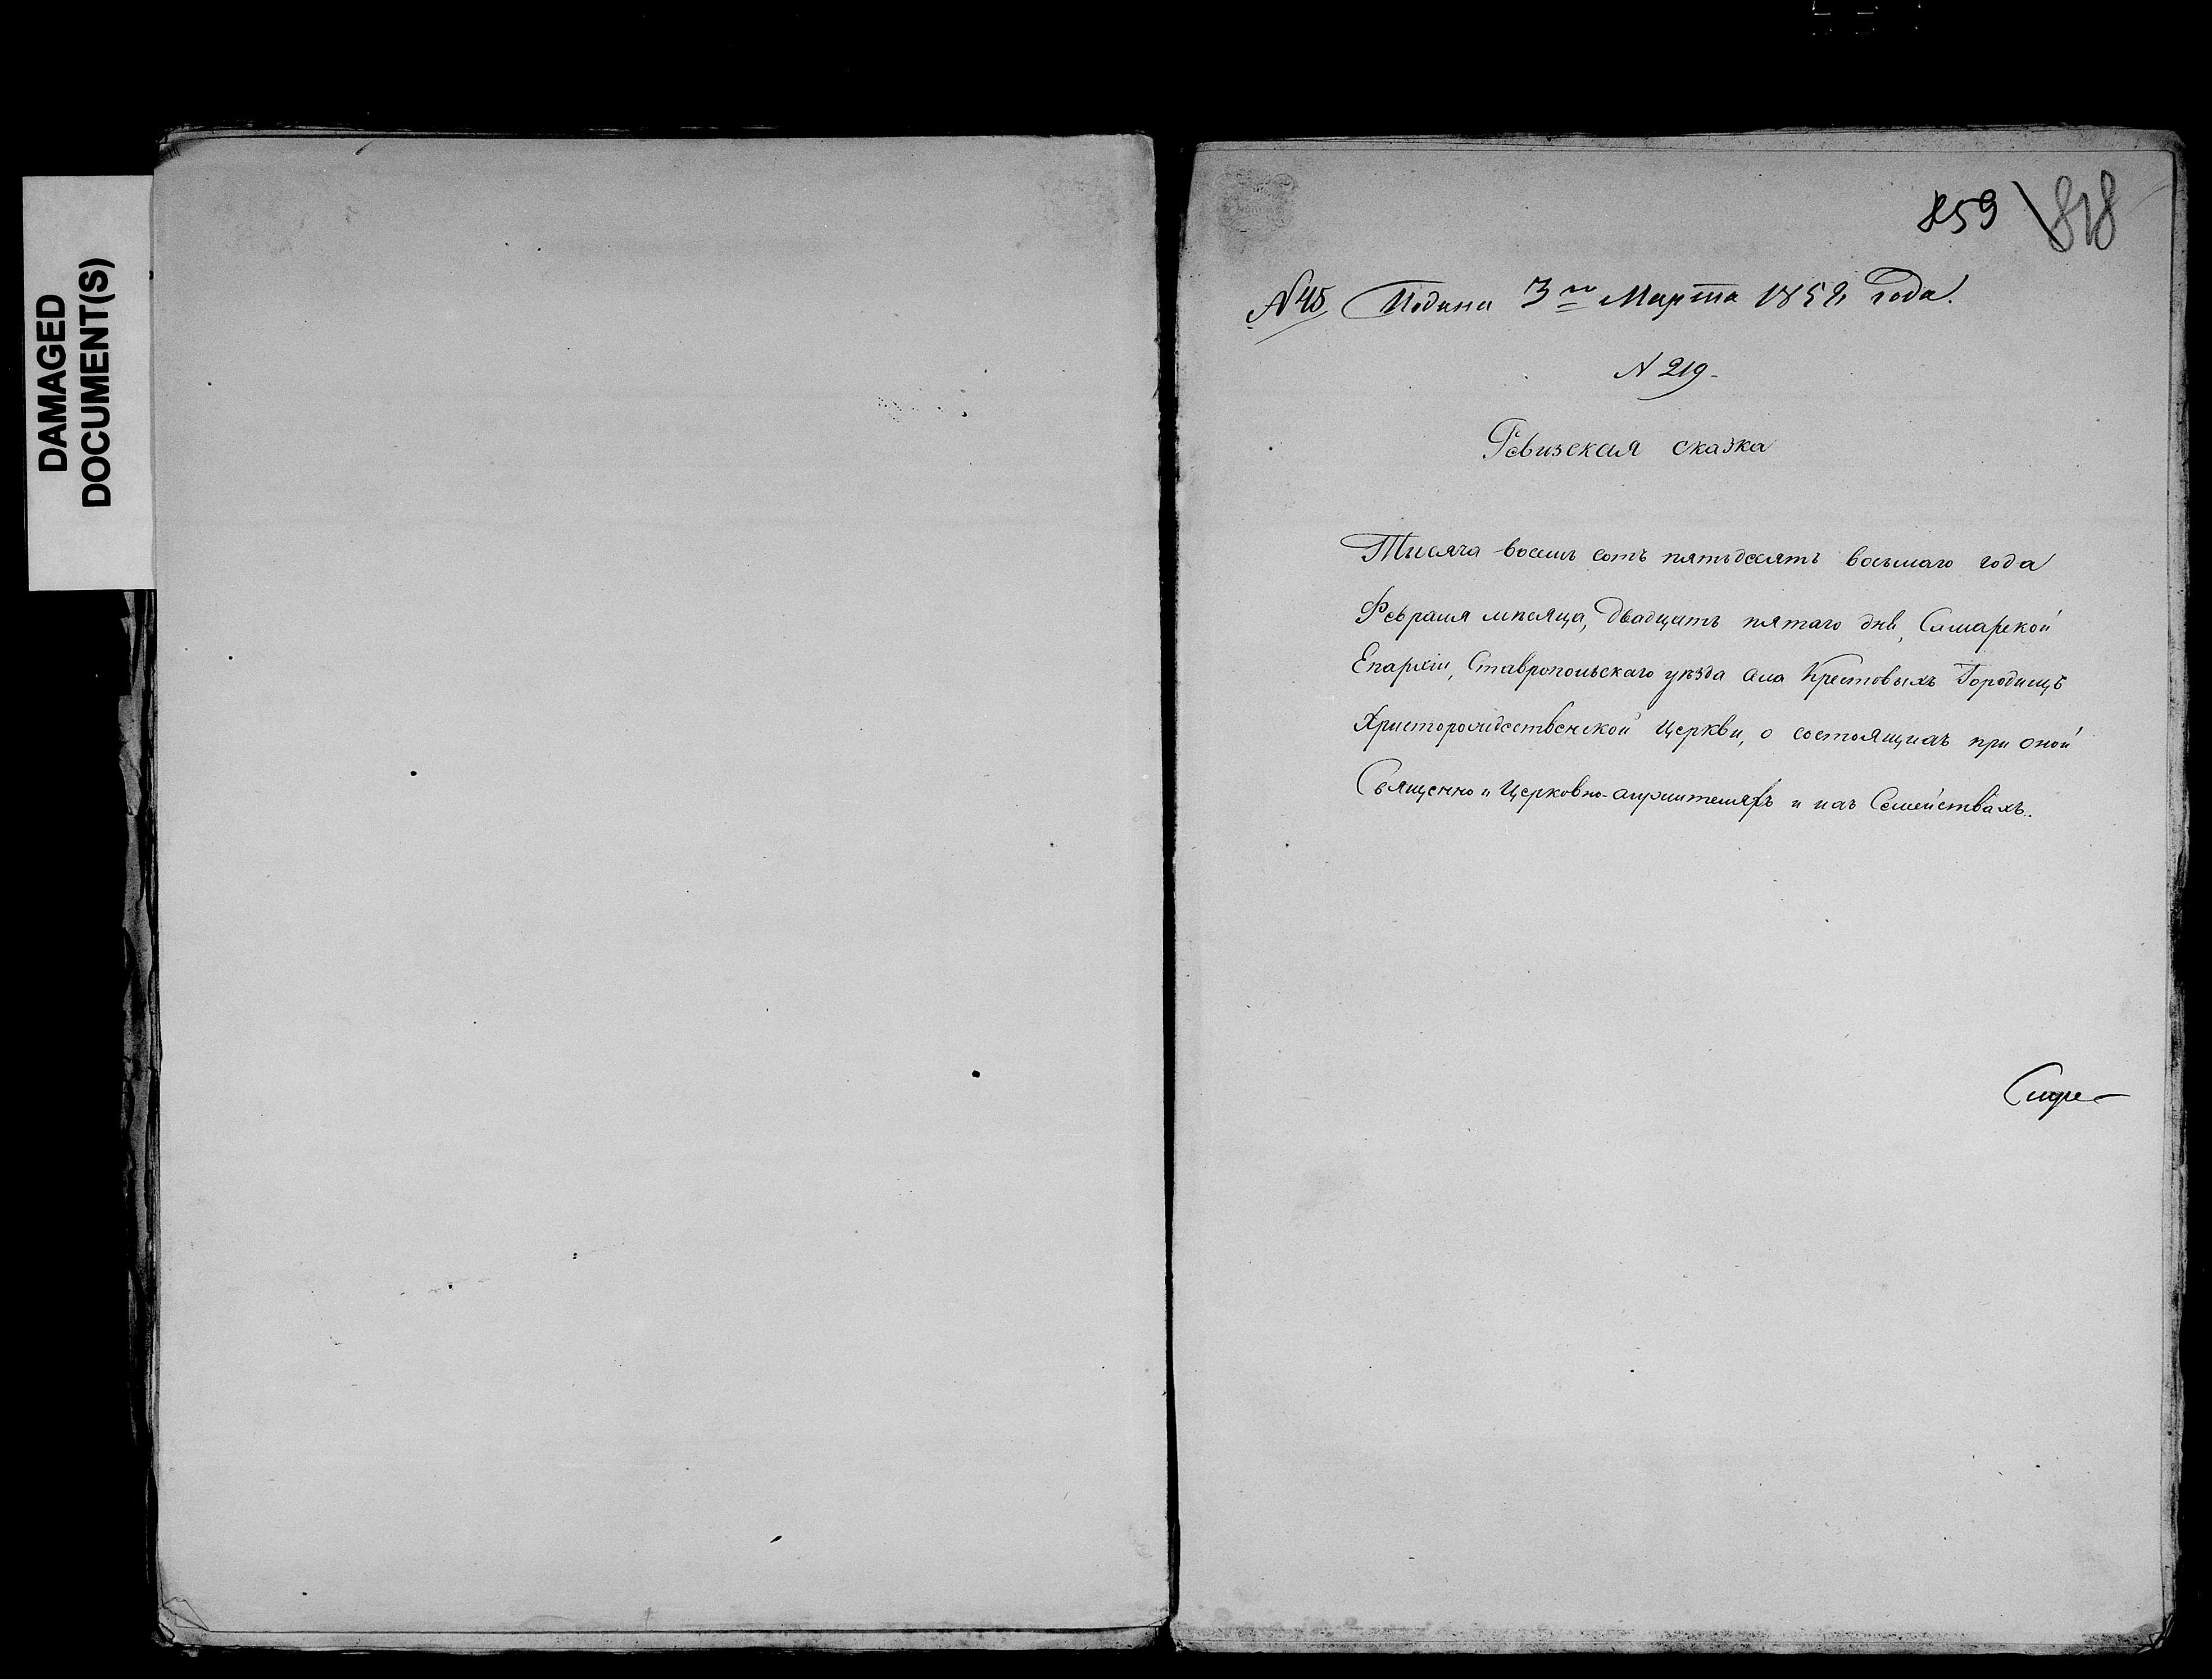 DAMAGED
DOCUMENT(S)
859 818
№ 45 Подана 3го Марта 1858 года.
№ 219.
Ревизская сказка
Тысяча восемь сотъ пятьдесятъ восьмаго года
Февраля мѣсяца, двадцать пятаго дня, Самарской
Епархіи, Ставропольскаго уѣзда села Крестовыхъ Городищъ
Христорождественской Церкви, о состоящихъ при оной
Священно и Церковно-служителяхъ и ихъ Семействахъ.